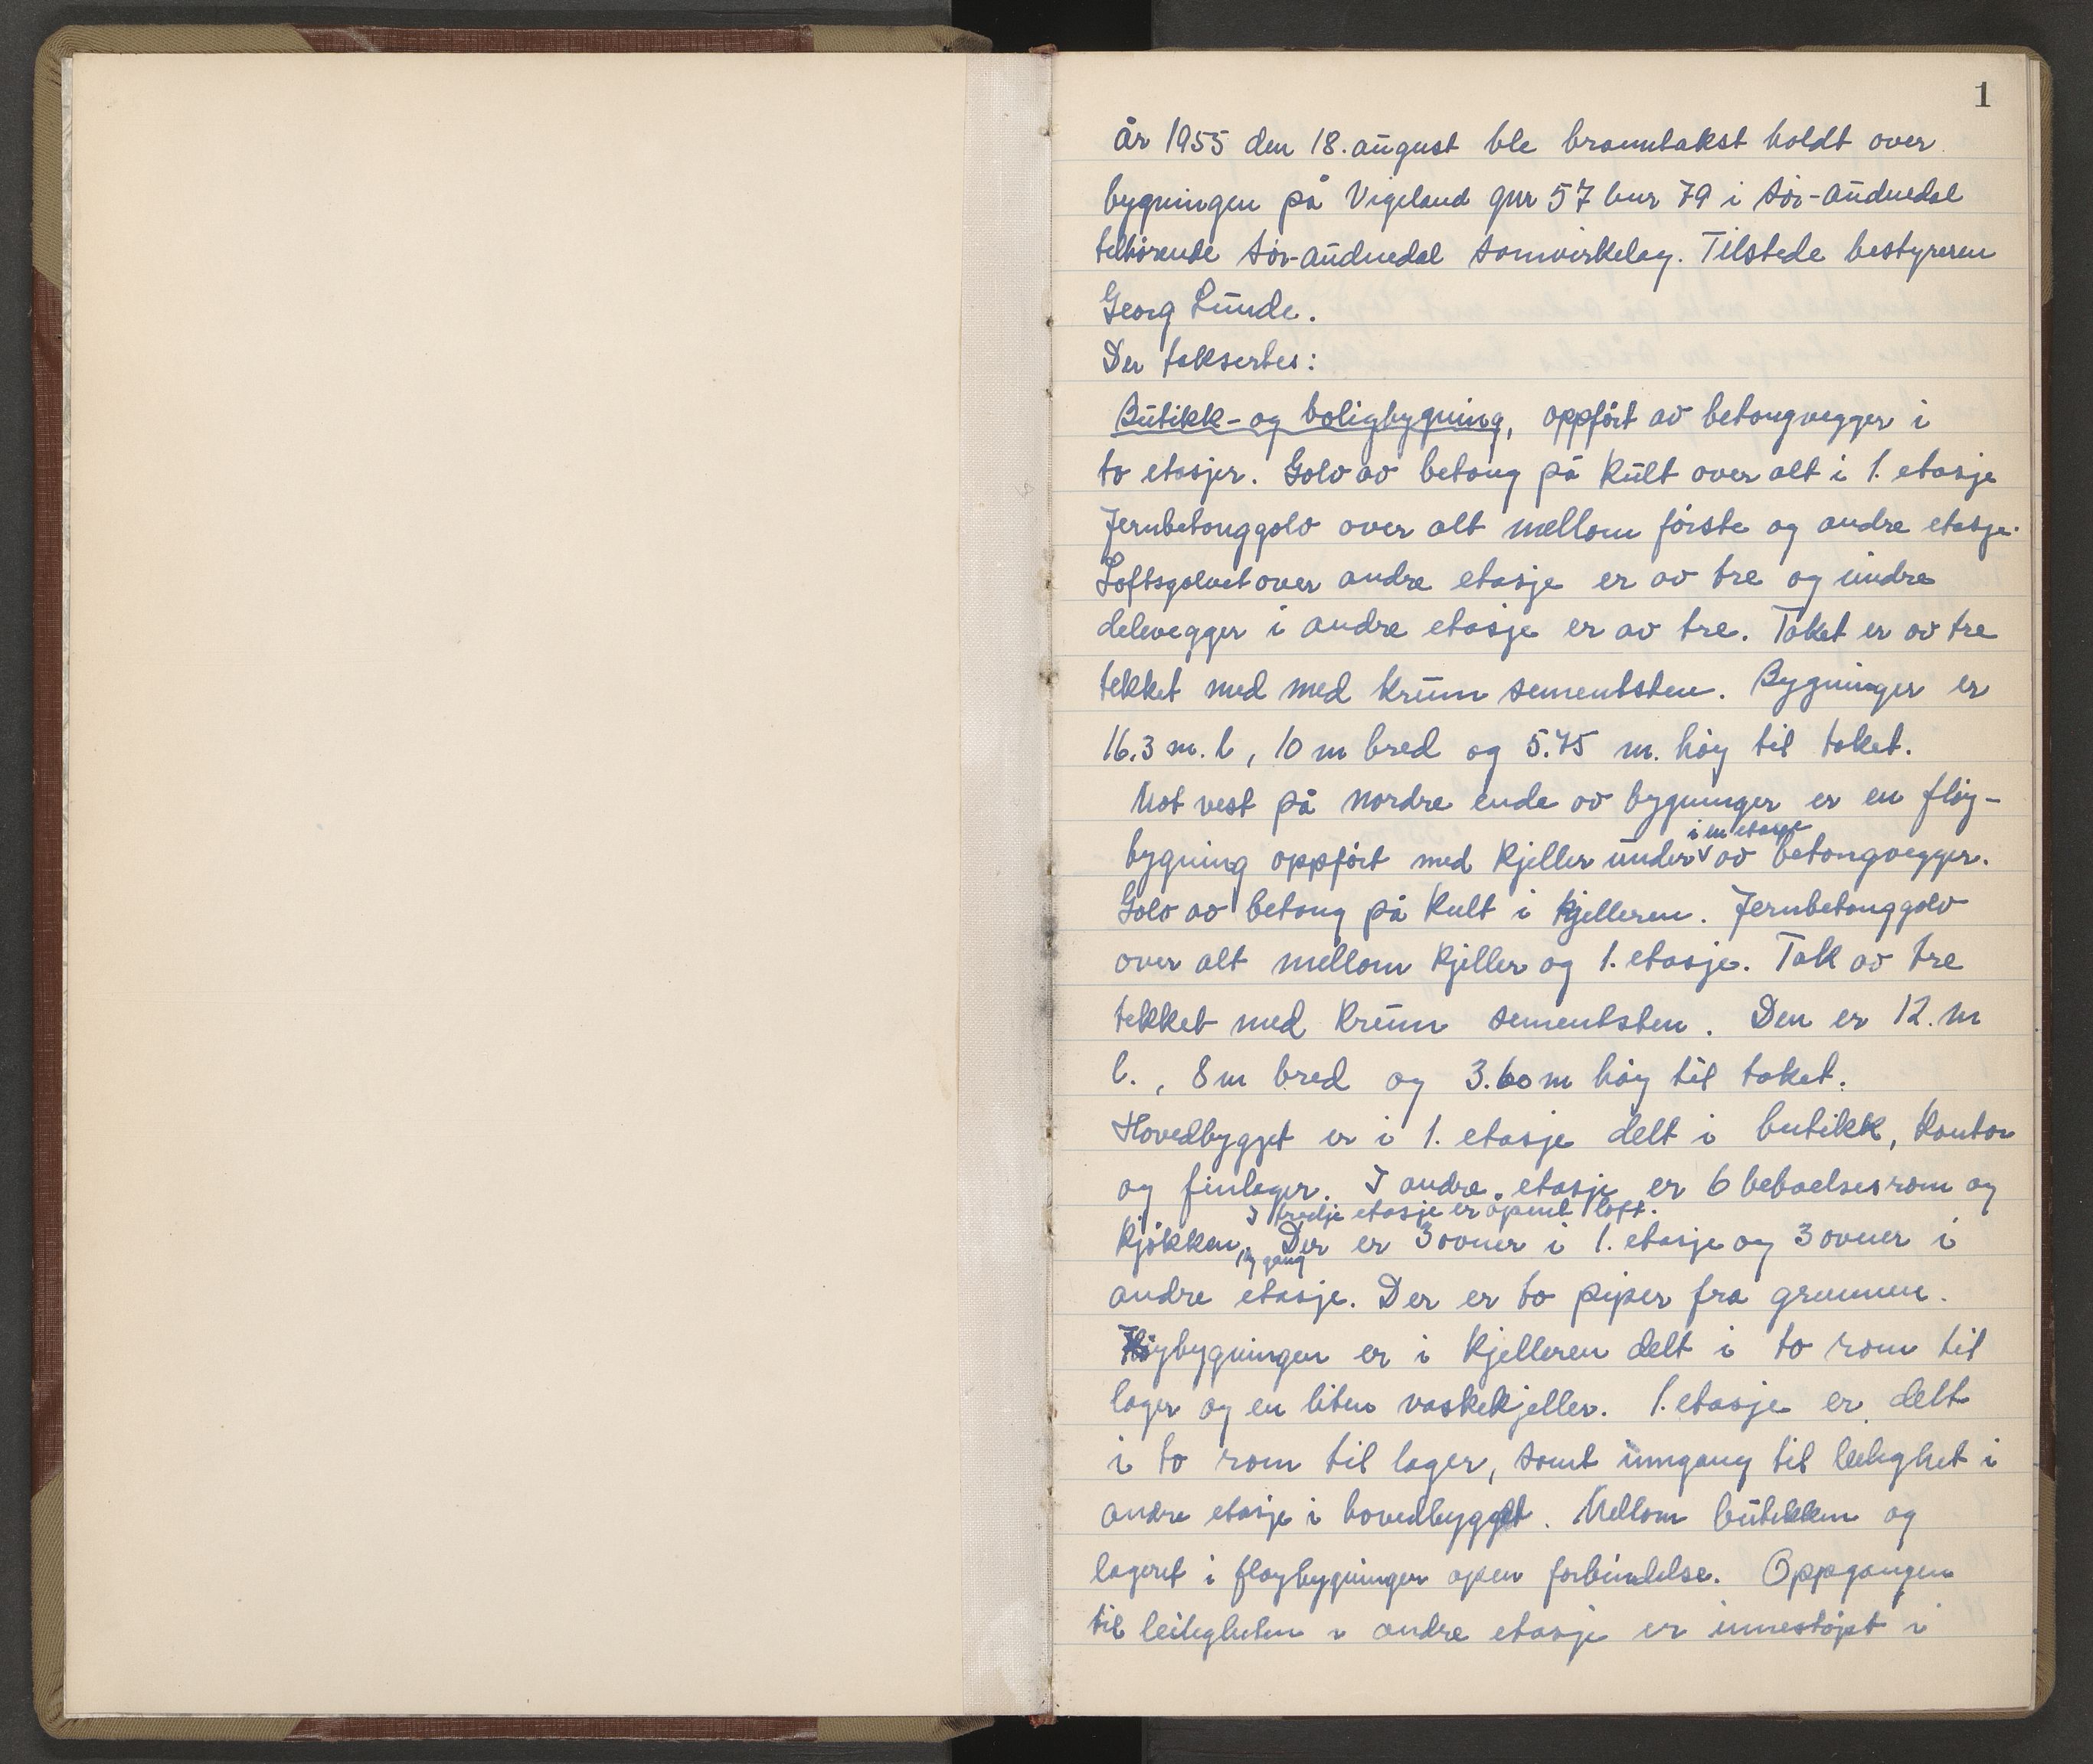 1
År 1955 den 18. august ble branntakst holdt over
bygningen på Vigeland gnr 57 bnr 79 i Sør-Audnedal
tilhørende Sør-Audnedal Samvirkelag. Tilstede bestyreren
Georg Lunde.
Der taksertes:
Butikk- og boligbygning, oppført av betongvegger i
to etasjer. Golv av betong på kult over alt i 1. etasje
Jernbetonggolv over alt mellom første og andre etasje.
Loftsgolvet over andre etasje er av tre og indre
delevegger i andre etasje er av tre. Taket er av tre
tekket med med krum sementsten. Bygningen er
16.3 m. l, 10 m bred og 5.75 m. høy til taket.
Mot vest på nordre ende av bygningen er en fløy-
i en etasje
bygning oppført med kjeller under v av betongvegger.
Golv av betong på kult i kjelleren. Jernbetonggolv
over alt mellom kjeller og 1. etasje. Tak av tre
tekket med krum sementsten. Den er 12. m
l., 8 m bred og 3.60 m høy til taket.
Hovedbygget er i 1. etasje delt i butikk, kontor
og finlager. I andre etasje er 6 beboelsesrom og
I tredje etasje er åpent loft.
kjøkken, Der er 3 ovner i 1. etasje og 3 ovner i
og gang
andre etasje. Der er to piper fra grunnen.
Fløybygningen er i kjelleren delt i to rom til
lager og en liten vaskekjeller. 1. etasje er delt
i to rom til lager, samt inngang til leilighet i
andre etasje i hovedbygget. Mellom butikken og
lageret i fløybygningen open forbindelse. Oppgangen
til leiligheten i andre etasje er innestøpt i